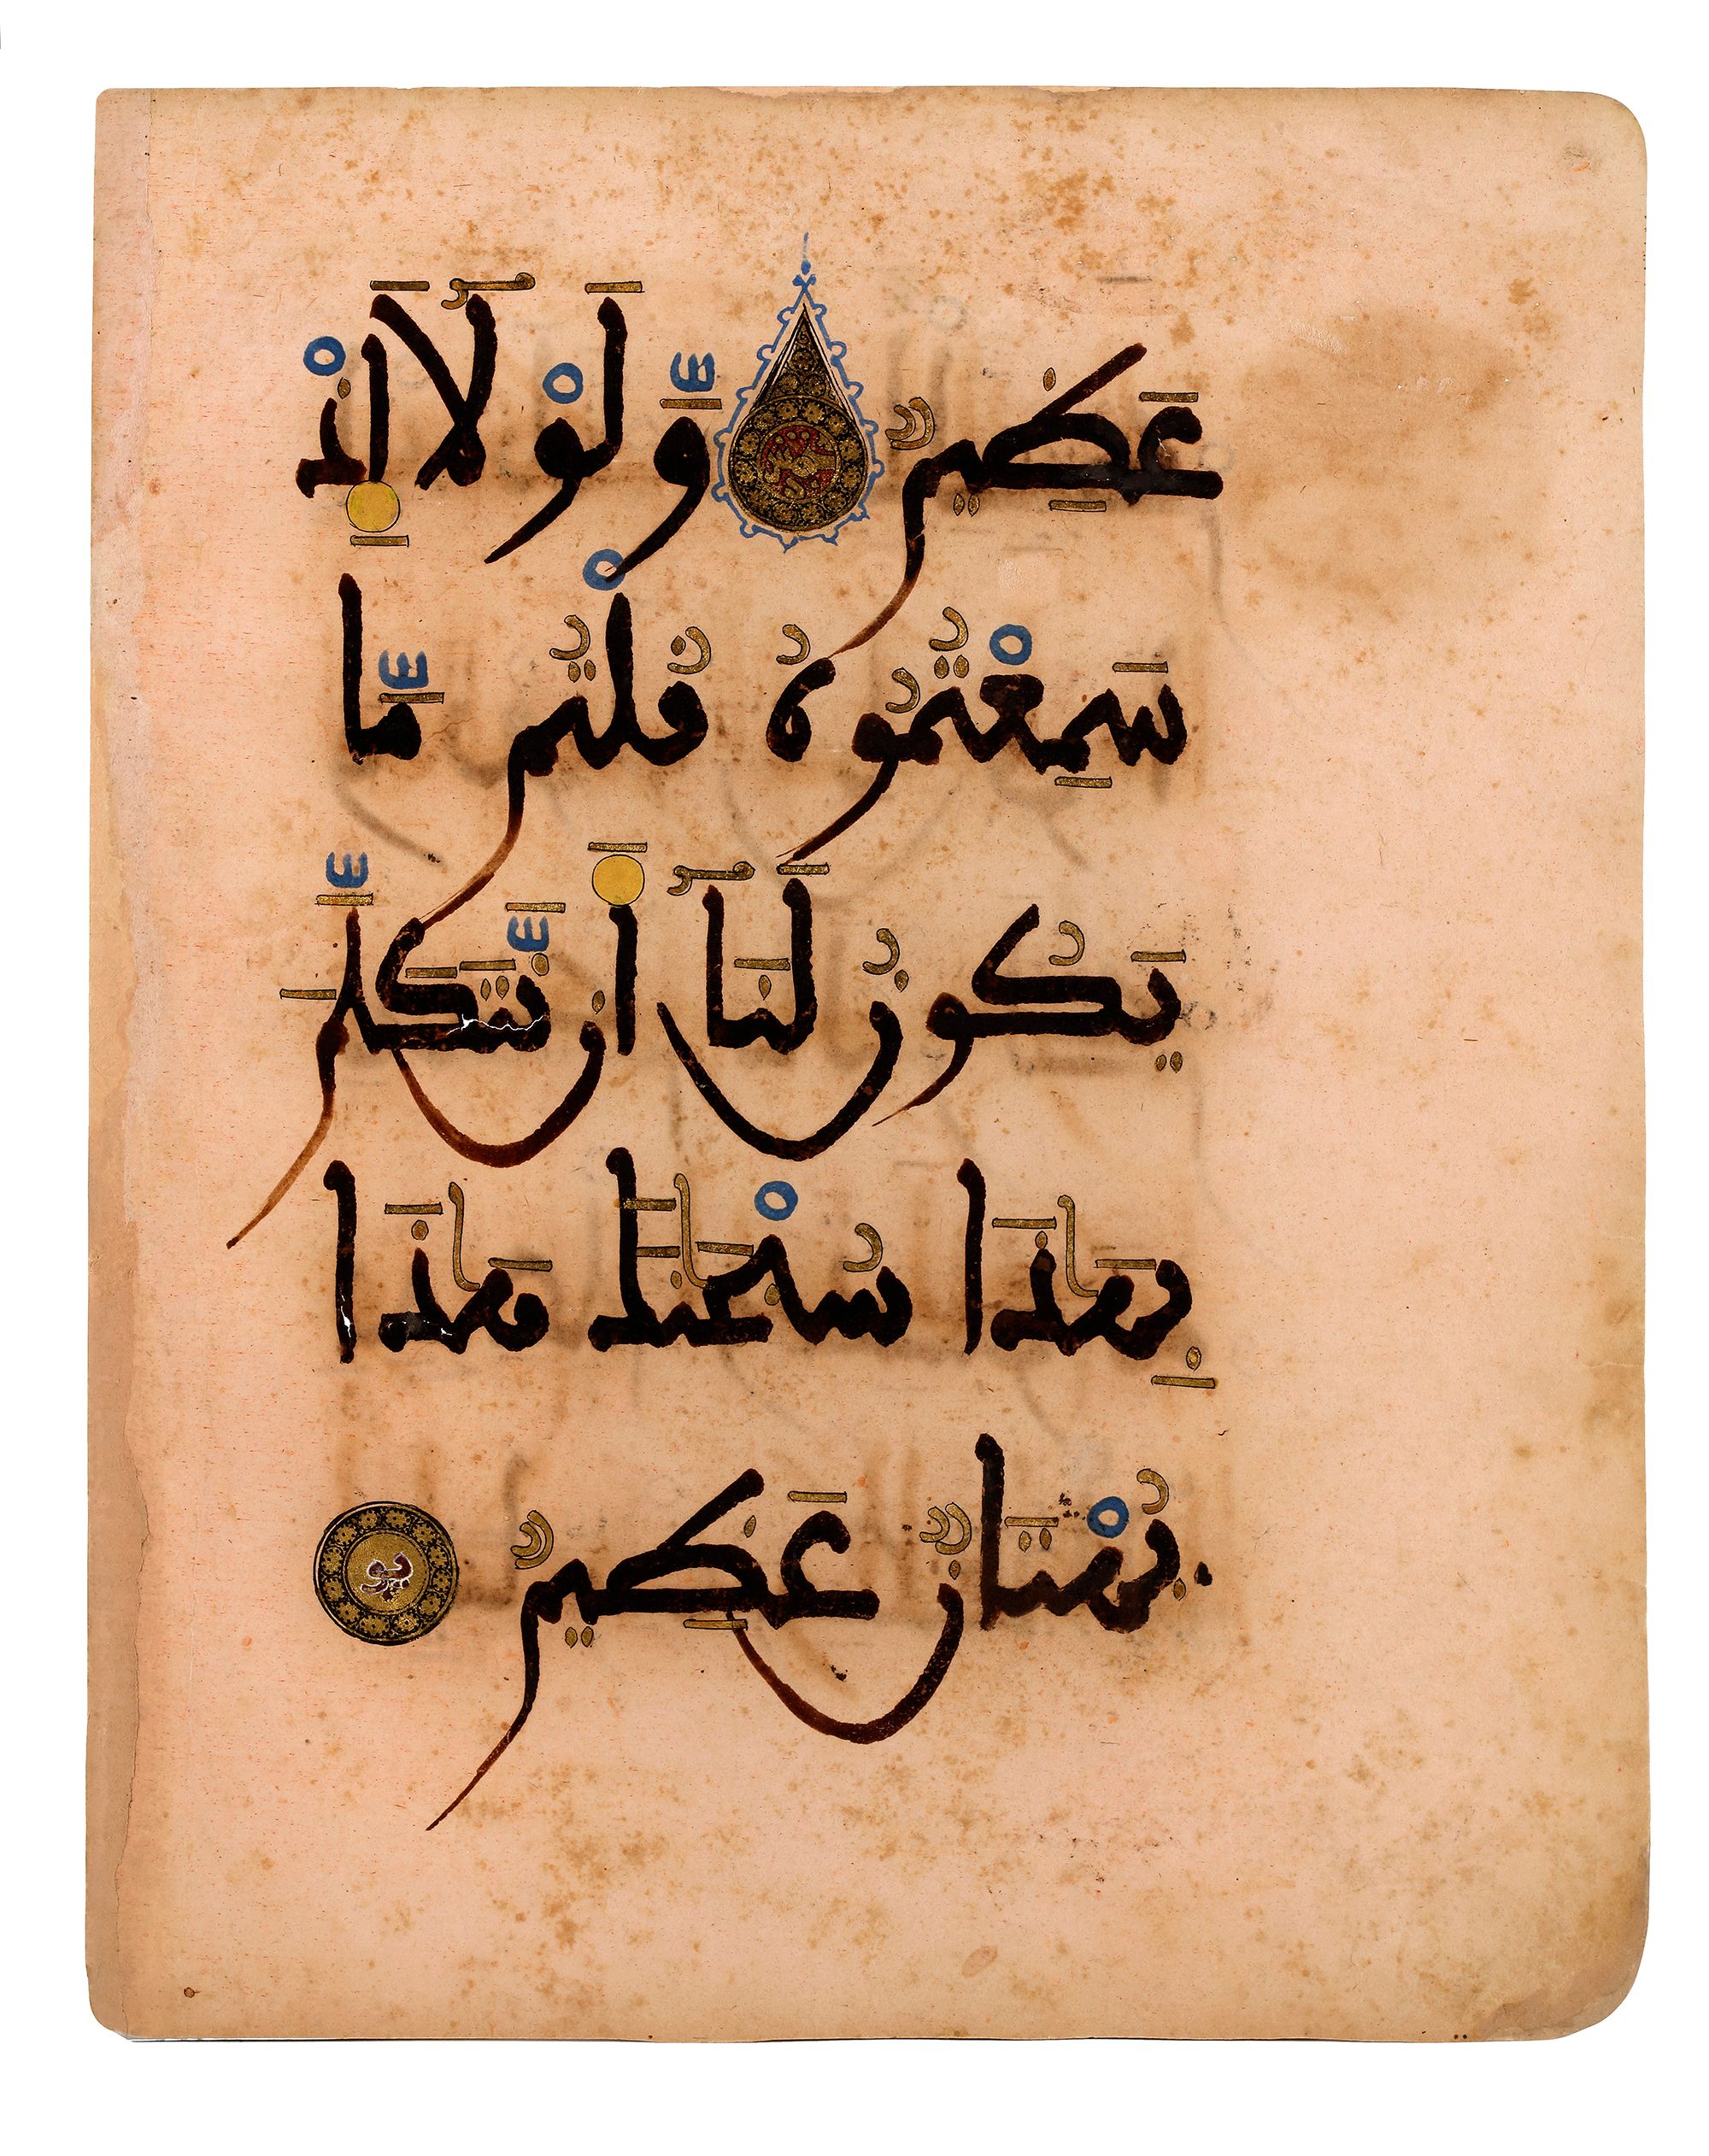 عَظِيمٌ وَّلَوْلَآ إِذْ
سَمِعْتُمُوهُ قُلْتُم مَّا
يَكُونُ لَنَآ أَن نَّتَكَلَّمَ
بِهَٰذَا سُبْحَٰنَكَ هَٰذَا
بُهْتَٰنٌ عَظِيمٌ